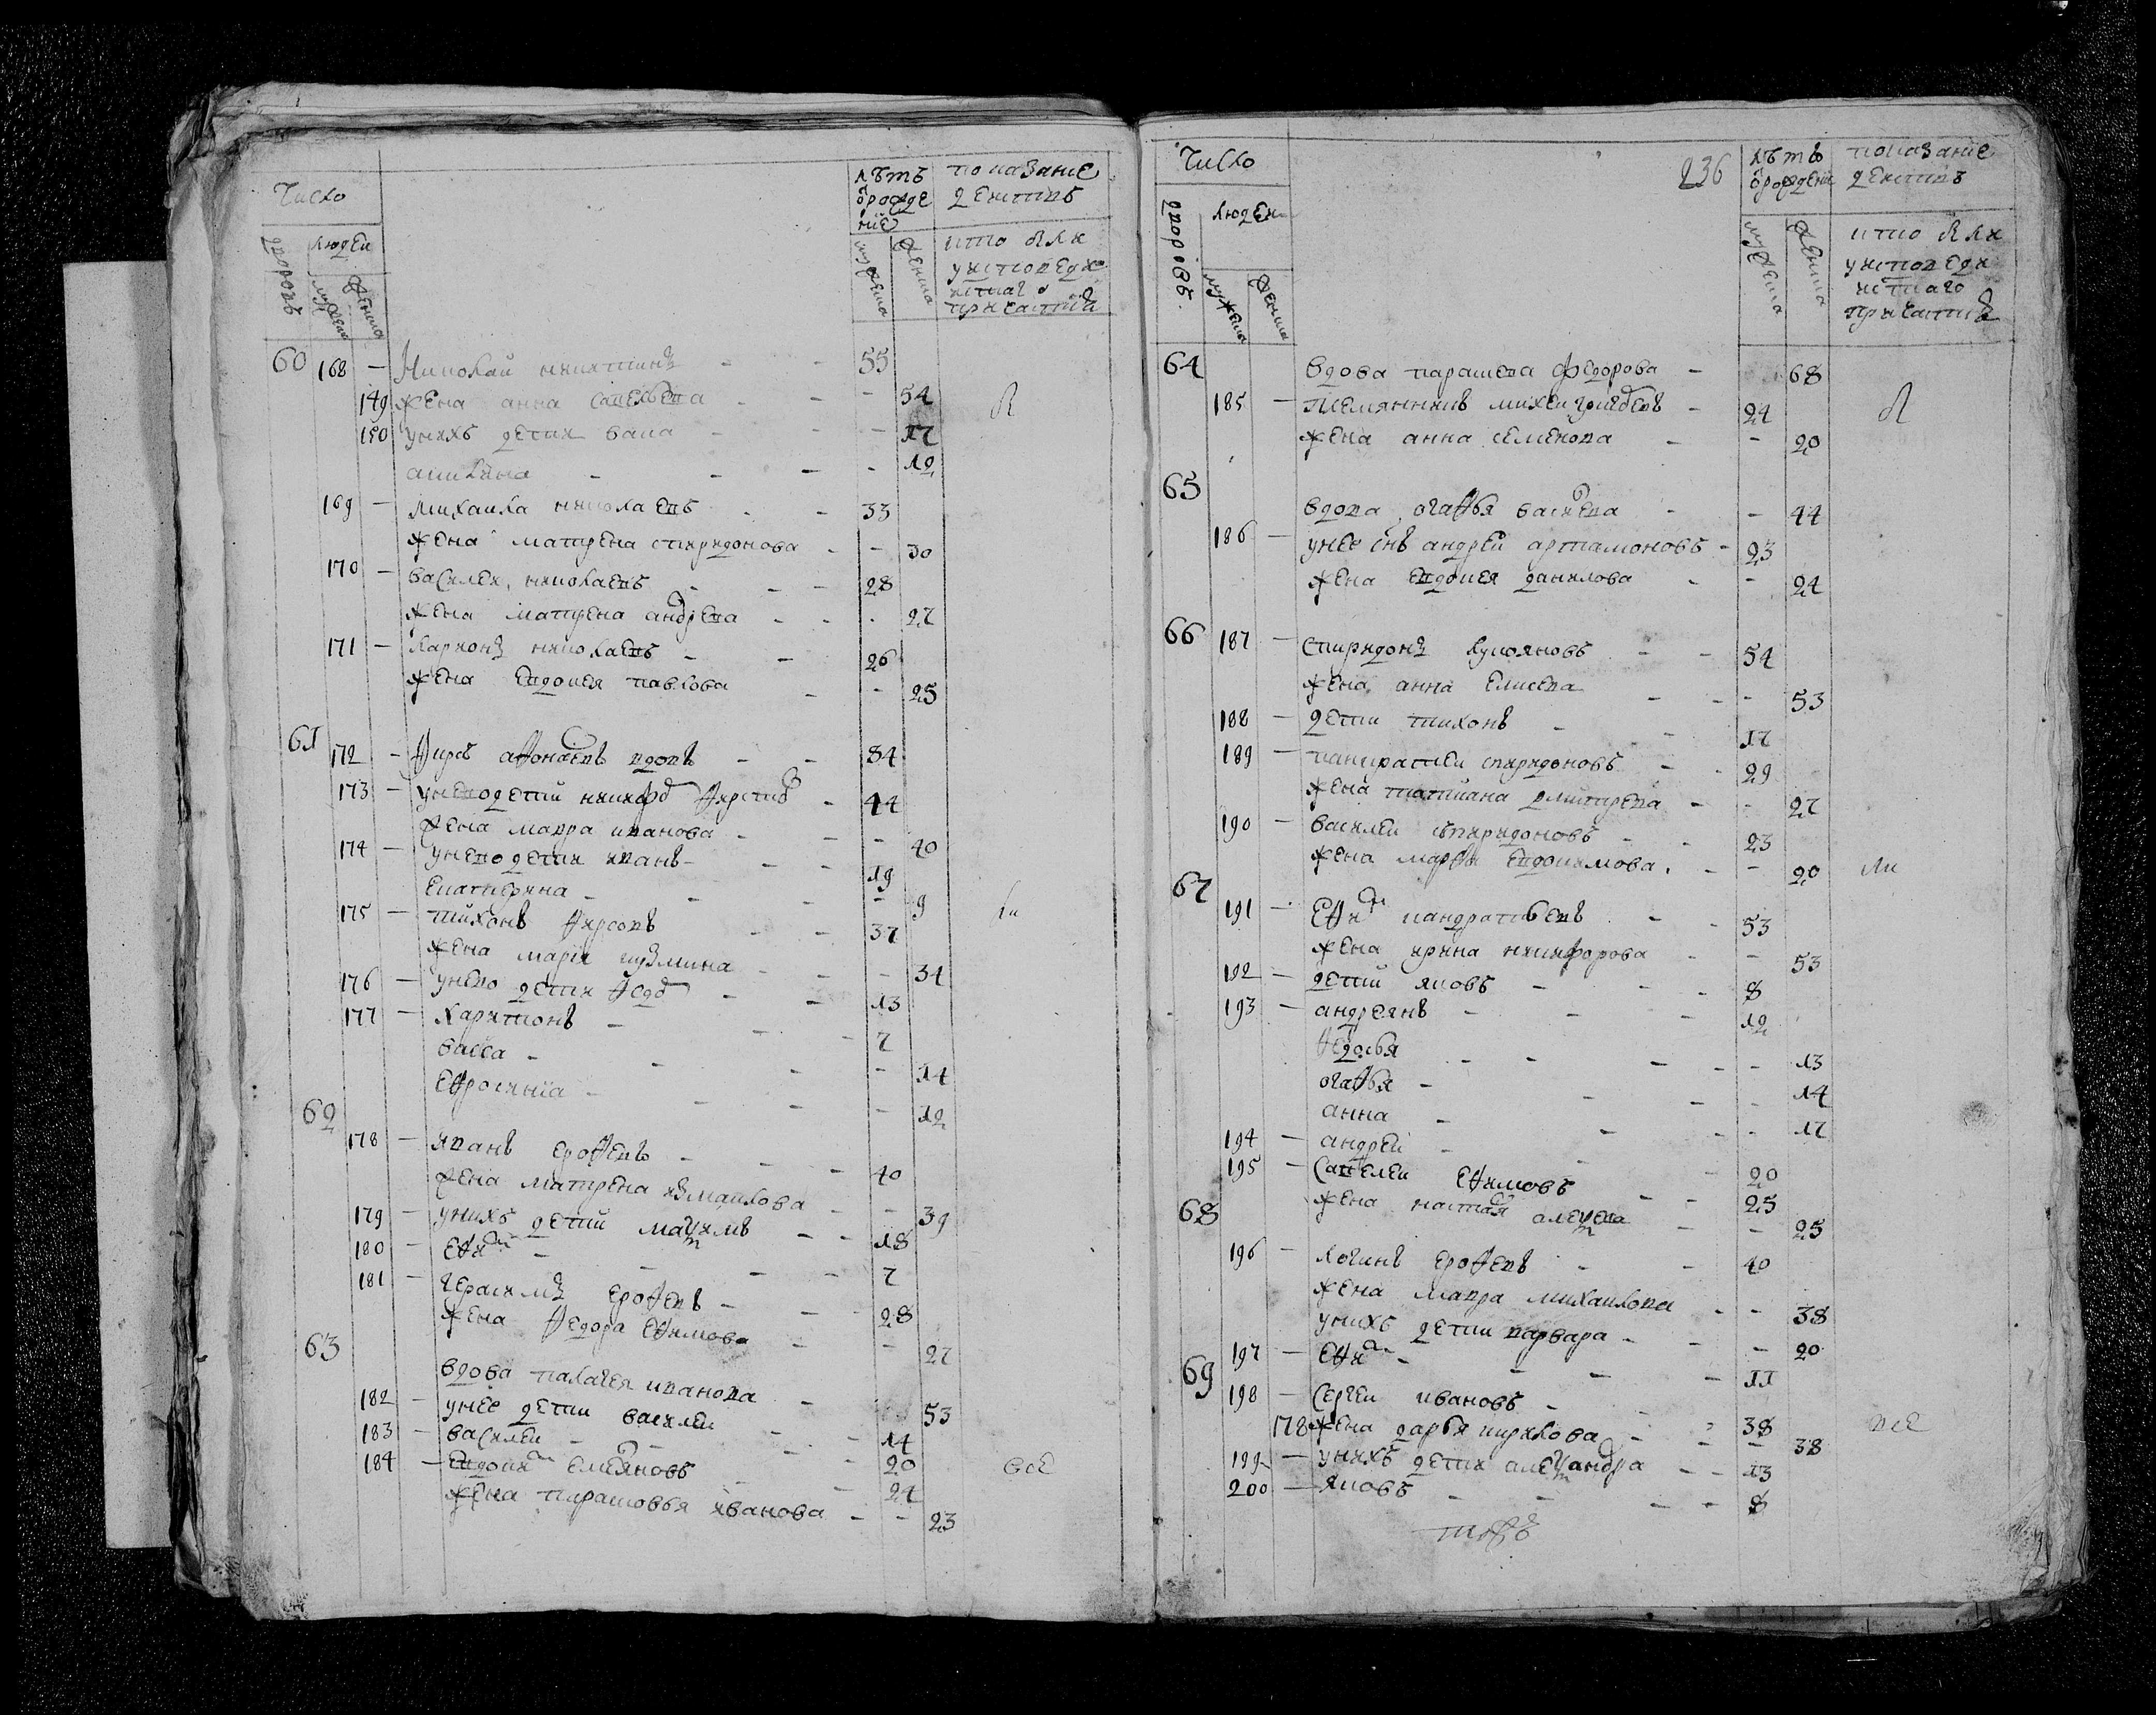 Число
лѣтъ показание
ѿрожде денствъ
ние
людей
дворовъ
мужеска
женска
мужеска
женска
кто был
у исповеди
и стаго
причастия
60 168 — Николай никитинъ - - 55
149 жена анна савельева - - 54
150 у нихъ дети васа - - 17
акилина - - - - 12
169 — михаила николаевъ - - 33
жена матрена спиридонова - - 30
170 — василеи николаевъ - - 28
жена матрена андрева - - 27
171 — ларионъ николаевъ - - 26
жена евдокея павлова - - 25
61 172 — Фирсъ афонасевъ вдовъ - - 84
173 — у него детй никифоръ фирсовъ - 44
жена мавра иванова - - 40
174 — у него дети иванъ - - 19
екатерина - - - 9
175 — тихонъ фирсовъ - - 37
жена марiя кузмина - - 34
176 — у него дети федоръ - - 13
177 — харитонъ - - - 7
васса - - - - 14
ефросинiа - - - - 12
62
178 — иванъ ерофевъ - - - 40
жена матрена измаилова - - 39
179 — у нихъ детй маѯимъ - - 18
180 — ефимъ - - - 7
181 — герасимъ ерофевъ - - - 28
жена федора ефимова - - 27
63
вдова палагея иванова - 53
182 — у нее дети василеи - - 14
183 — василеи - - - 20
184 — евдокимъ емеляновъ - - 24
жена парасковья иванова - - 23
все
236
Число
лѣтъ показание
ѿ рождени денствъ
людеи
дворовъ
мужеска
женска
мужеска
женска
кто был
у исповеди
и стаго
причастия
64 вдова параскева федорова - 68
185 — племянникъ михеи - 24
жена анна семенова - - 20
65
вдова огафья василева - - 44
186 — у нее снъ андрей артамоновъ - 23
жена евдокея данилова - - 24
66 187 — спиридонъ лукояновъ - - 54
жена анна елисева - - 53
188 — дети тихонъ - - 17
189 — панкратеи спиридоновъ - - 29
жена татиана дмитрева - - 27
190 — василеи спиридоновъ - - 23
жена марфа евдокимова - - 20
67
191 — ефимъ кандратьевъ - - 53
жена ирина никифорова - - 53
192 — детй яковъ - - - 8
193 — андреянъ - - - 12
федосья - - - - 13
огафья - - - - 14
анна - - - - 17
194 — андрей - - - 20
195 — савелеи ефимовъ - - 25
68 жена настасья алеѯева - - 25
196 — логинъ ерофевъ - - 40
жена мавра михаилова - - 38
у нихъ дети варвара - - 20
197 — ефимъ - - - - 11
69
198 — Сергеи ивановъ - - 38
178 жена дарья кирилова - - 38
все
199 — у нихъ дети алеѯандра - - 13
200 — яковъ - - - - 8